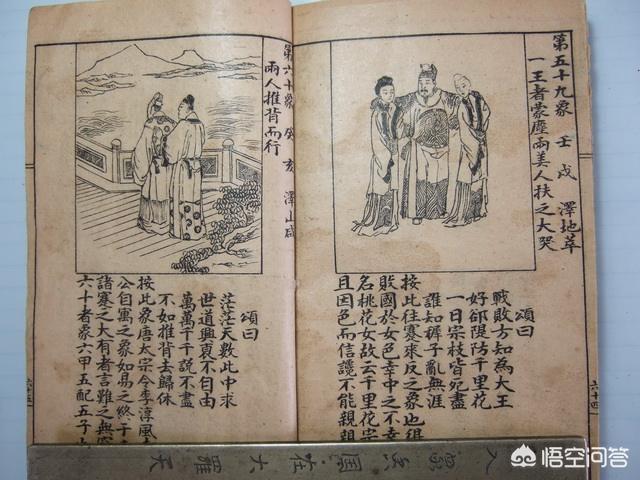 第五十九象 壬戌 澤地萃
一王者蒙塵兩美人扶之大哭
頌曰
戰敗方知為大王
好郤隄防千里花
一日宗枝皆死盡
誰知褲子亂無涯
按此往蹇來反之象也
敗國於女色幸中之不幸
名桃花女故云千里花宗
且因色而信讒不能親親
六十四
第六十象 癸亥 澤山咸
兩人推背而行
頌曰
茫茫天數此中求
世道興衰不自由
萬萬千千說不盡
不如推背去歸休
按此象唐太宗令李淳風
公自寓之象如易之終于
諸蹇之大有者言雖之無
六十者象六甲五配五子
六十五
入 圖在大羅天
悟空问答